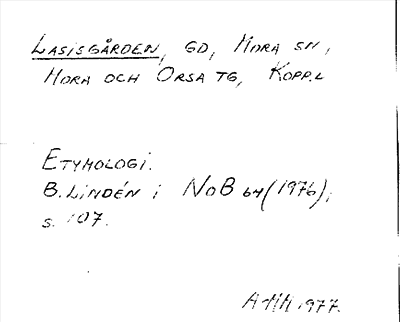 LASISGÅRDEN, GD, MORA SN,
MORA OCH ORSA TG, KOPP.L
ETYMOLOGI.
B. LINDÉN i NoB 64 (1976),
s. 107.
1977.